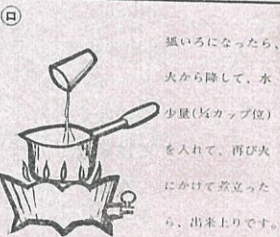 ㋺
狐いろになったら、
火から降して、水
少量(¼カップ位)
を入れて、再び火
にかけて煮立った
ら、出来上りです。